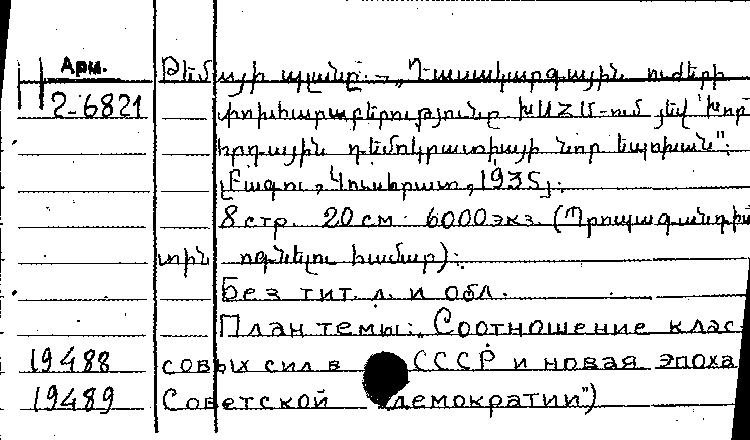 Арм. Թեմայի պլանը.— „Դասակարգային ուժերի
2-6821 փոխհարաբերությունը ԽՍՀՄ-ում յեվ խոր
հրդային դեմոկրատիայի նոր եպոխան":
[Բագու, Կուսհրատ, 1935]:
8 стр. 20 см. 6000 экз. (Պրոպագանդիս
տին ոգնելու համար):
Без тит. л. и обл.
План темы: „Соотношение клас
19488 совых сил в СССР и новая эпоха
19489 Советской демократии")